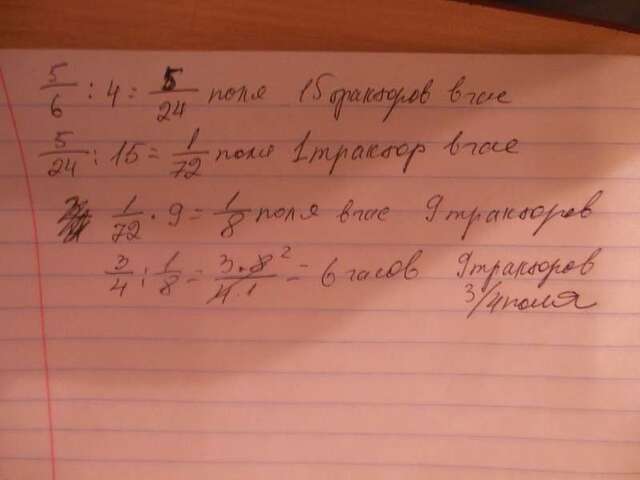 5/6 : 4 = 5/24 поля 15 тракторов в час
5/24 : 15 = 1/72 поля 1 трактор в час
1/72 · 9 = 1/8 поля в час 9 тракторов
3/4 : 1/8 = 3·8²/4·1 = 6 часов 9 тракторов
3/4 поля